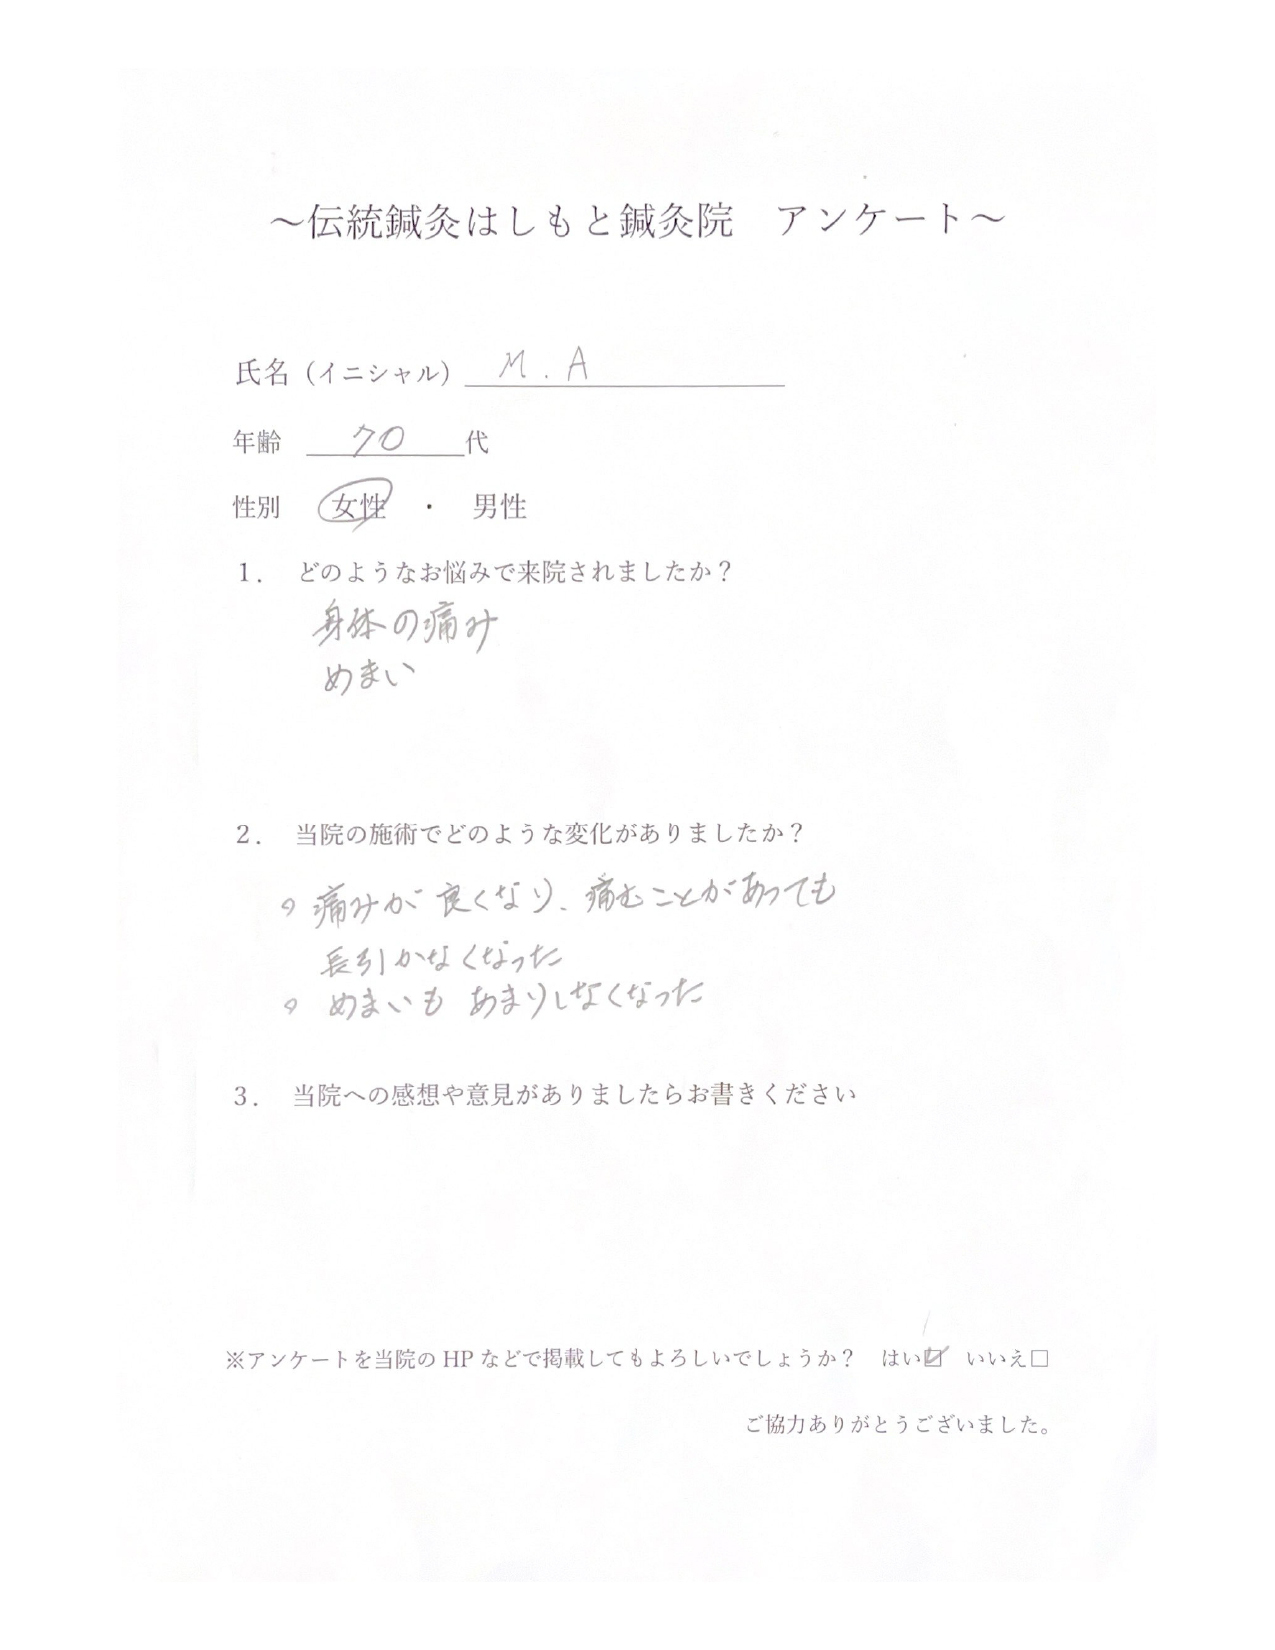 ～伝統鍼灸はしもと鍼灸院　アンケート～
氏名（イニシャル） M.A
年齢 70 代
性別 女性 ・ 男性
１． どのようなお悩みで来院されましたか？
身体の痛み
めまい
２． 当院の施術でどのような変化がありましたか？
○ 痛みが良くなり、痛むことがあっても
長引かなくなった
○ めまいも あまりしなくなった
３． 当院への感想や意見がありましたらお書きください
※アンケートを当院の HP などで掲載してもよろしいでしょうか？ はい☑ いいえ□
ご協力ありがとうございました。